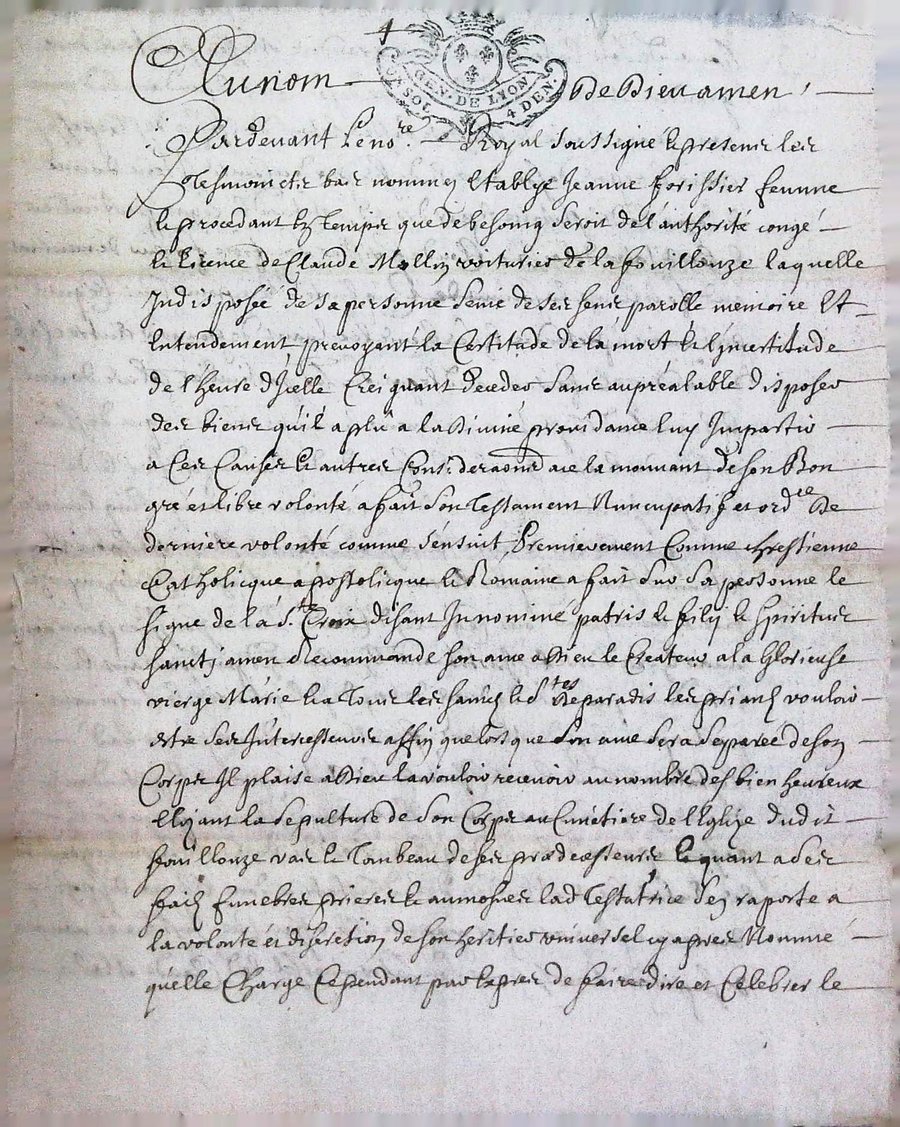 4
GEN. DE LYON
1 SOL 4 DEN.
Au nom de Dieu amen
Pardevant le no.re Royal soubsigné et presents les
tesmoins bas nommés establye Jeanne forissier femme
et procedant en temps que de besoing seroit de l'authorité congé
et licence de Claude Mollin voiturier de la fouillouze laquelle
Indisposée de sa personne seine de ses sens parolle memoire et
entendement prevoyant la certitude de la mort et l'incertitude
de l'heure d'Icelle Creignant deceder sans au préalable disposer
des biens qu'il a plû a la divine providance luy Impartir
a ces causes et autres considerations a ce la mouvant de son bon
gré et libre volonté a fait son testament Nuncupatif et ord.ce de
derniere volonté comme s'ensuit Premierement comme chrestienne
Catholicque apostolicque et Romaine a fait sur sa personne le
signe de la S.te Croix disant In nominé patris et filij et spiritus
sancti amen Recommande son ame a dieu le Createur a la glorieuse
vierge Marie et a tous les saincts et s.tes de paradis les priant vouloir
estre ses Intercesseurs affin que lors que son ame sera separée de son
Corps Il plaise a dieu la vouloir recevoir au nombre des bien heureux
Elizant la sepulture de son Corps au Cimetiere de l'Eglize dudit
fouillouze vas et Tombeau de ses prædecesseurs et quant a ses
fraits funebres prieres et aumosnes lad Testatrice s'en raporte a
la volonté et discretion de son heritier universel cy apres Nommé
qu'elle Charge Cependant par expres de faire dire et Celebrer le